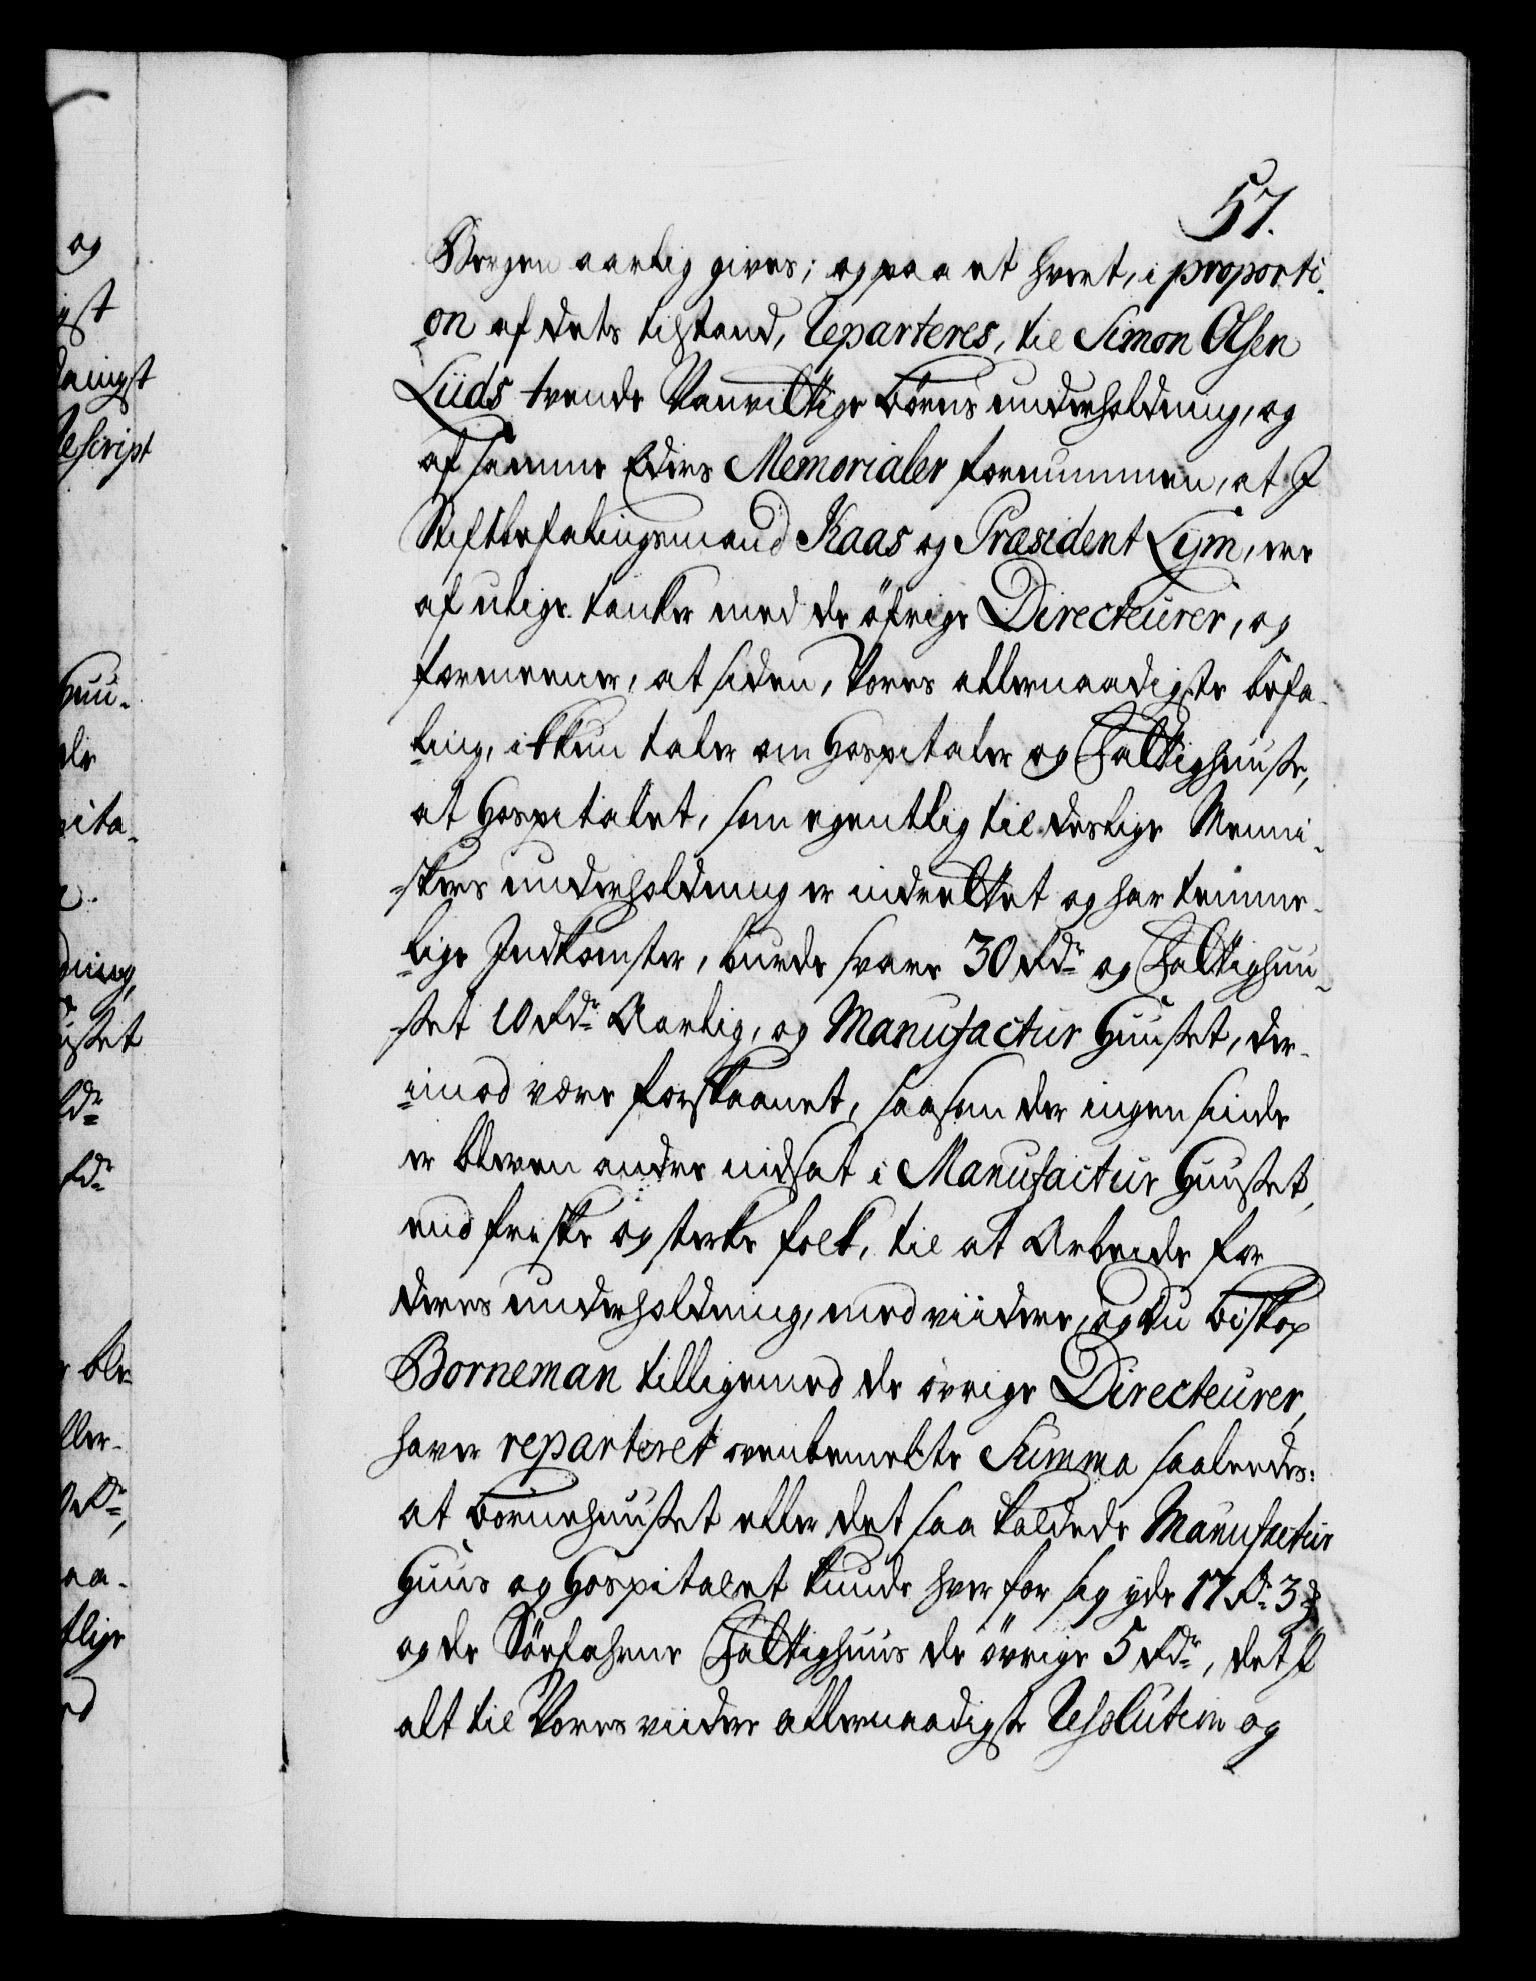 57.
Bergen aarlig gives; og paa et hvert, i proporti-
on af dets tilstand, reparteres, til Simon Olsen
Liids trende Vanvittige børns underholdning, og
af samme Eders Memorialer fornummen, at I
Stiftbefalingsmand Kaas og Præsident Lÿm, ere
af ulige tanker med de öfrige Directeurer, og
formeener, at siden, Vores allernaadigste befa-
ling, ikkun taler om Hospitaler og Fattighuuse,
at Hospitalet, som egentlig til deslige Menni-
skers underholdning er indrettet og har temme-
lige Indkomster, burde svare 30 Rdr og Fattighuu-
set 10 Rdr Aarlig, og Manufactur Huuset, der-
imod være forskaanet, saasom der ingen sinde
er bleven andre indsat i Manufactur Huuset,
end friske og sterke folk, til at Arbeide for
deres underholdning, med viidere, og du biskop
Borneman tilligemed de övrige Directeurer,
haver reparteret ovenbemelte Summa saaledes:
at børnehuuset eller det saa kaldede Manufactur
Huus og Hospitalet kunde hver for sig yde 17 Rdr 3 ℳ
og de Söefahrne Fattighuus de övrige 5 Rdr, det
alt til Vores viidere allernaadigste Resolution og
og
Rescript
Huu-
ning,
uset
ble-